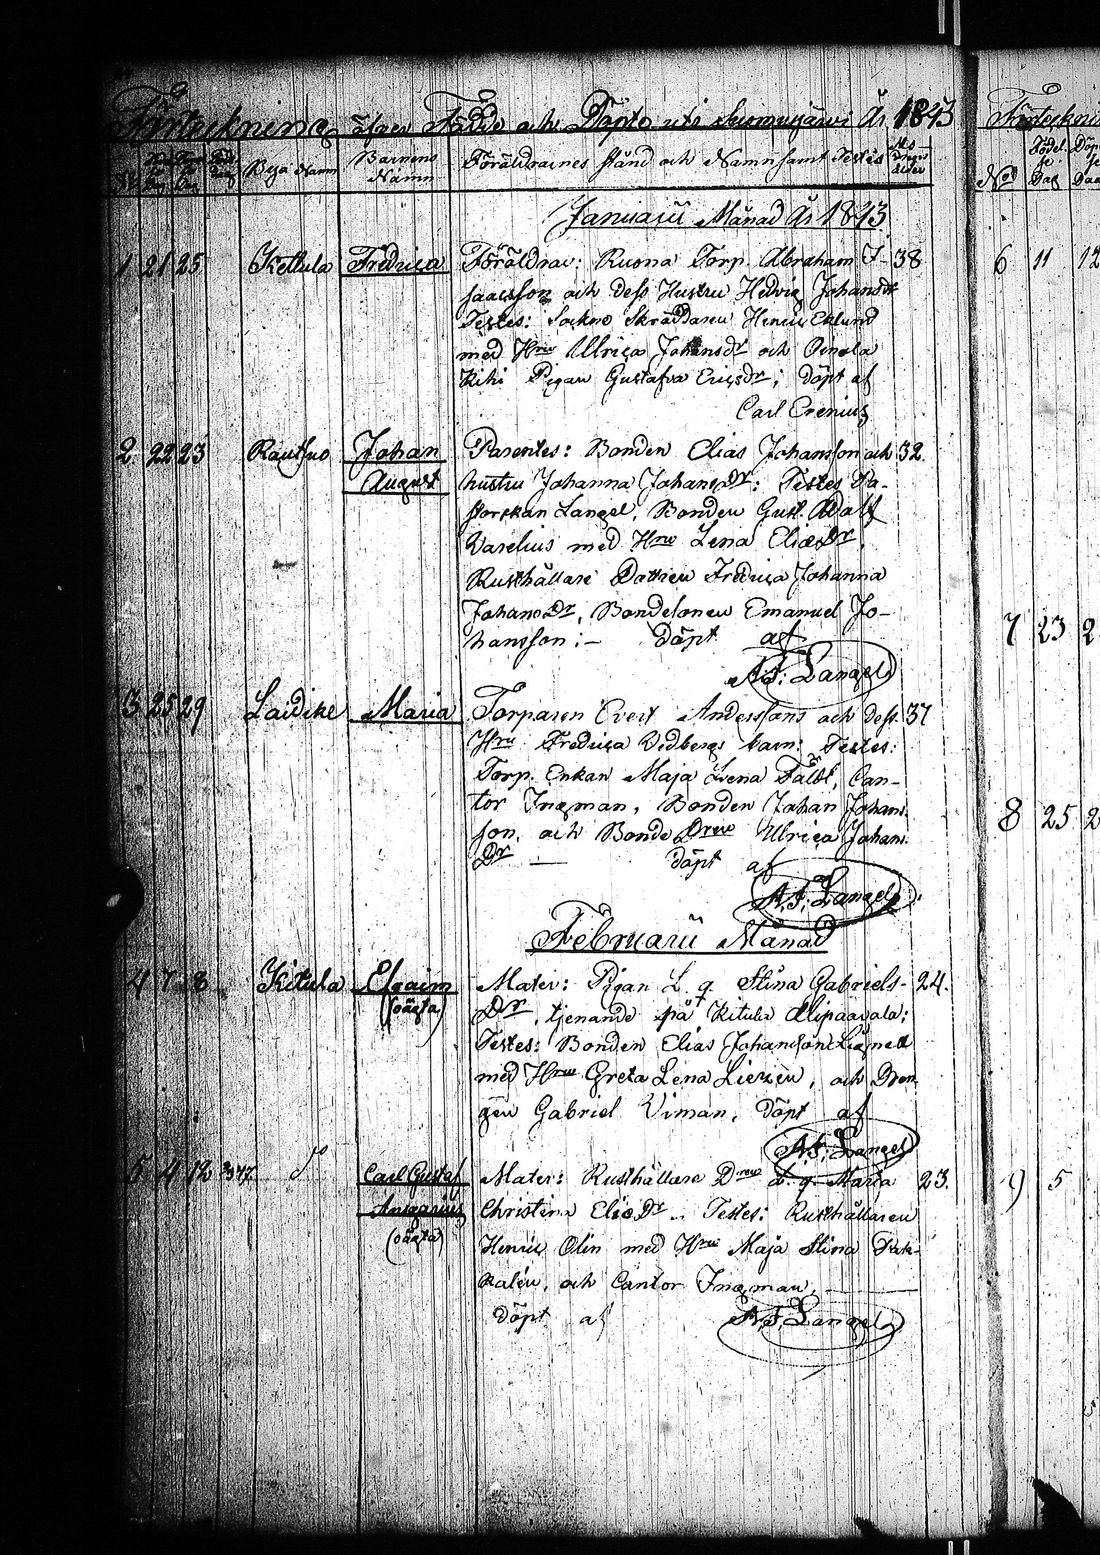 Förteckning öfver Födde och Döpte uti Suomusjärvi År 1843
No Födelse Dag Döpelse Dag Död dag Byä Namn Barnens Namn Föräldrarnes Stånd och Namn samt Testes Modrens ålder
Januarii Månad År 1843
1 21 25 Kettula Fredrica Föräldrar: Ruona Torp. Abraham I- 38
saacsson och dess Hustru Hedvig Johansdr
Testes: Sockne Skräddaren Henric Eklund
med Hru Ulrica Johansdr och
Pigan Gustafva Ericsdr; döpt af
Carl Crenius
2 22 23 Rautsuo Johan August Parentes: Bonden Elias Johansson och 32.
hustru Johanna JohansDr: Testes Pa-
storskan Langel, Bonden Gust. Adolf
Varelius med Hru Lena EliæDr,
Rusthållare Dottren Fredrica Johanna
JohansDr, Bondesonen Emanuel Jo-
hansson:- Döpt af
A.F. Langel
3 25 29 Laidike Maria Torparen Evert Anderssons och dess 37
Hru Fredrica Vedbergs barn: Testes:
Torp. Enkan Maja Lena Fält, Can-
tor Ingman, Bonden Johan Johans-
son, och Bonde Dren Ulrica Johans
Dr — döpt af
A.F. Langel
Februarii Månad
4 7 8 Kitula Efraim (oägta) Mater: Pigan L. q. Stina Gabriels- 24.
Dr, tjenande på Kitula Alipaavala;
Testes: Bonden Elias Johansson
med Hru Greta Lena, och Dren-
gen Gabriel Viman, döpt af
A.F. Langel
5 4 12 Carl Gustaf Ansgarius (oägta) Mater: Rusthållare Dren L. q. Maria 23.
Christina EliæDr.. Testes: Rusthållaren
Henric Olin med Hru Maja Stina
och Cantor Ingman,
döpt af A.F. Langel
Förteckning
No Födelse Dag
6 11 12
7 23
8 25
9 5